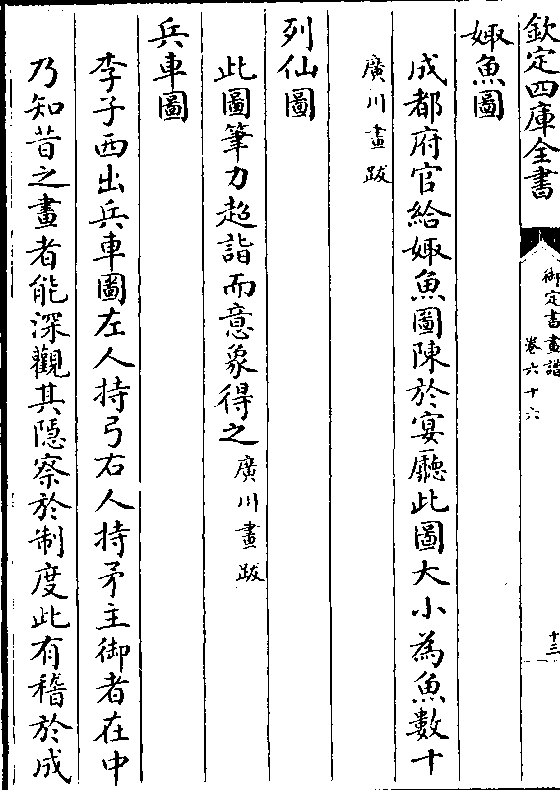 欽定四庫全書
御定書畫譜
卷六十六
十三
娵魚圖
成都府官給娵魚圖陳於宴廳此圖大小為魚數十
廣川畫跋
列仙圖
此圖筆力超詣而意象得之廣川畫跋
兵車圖
李子西出兵車圖左人持弓右人持矛主御者在中
乃知昔之畫者能深觀其隱察於制度此有稽於成